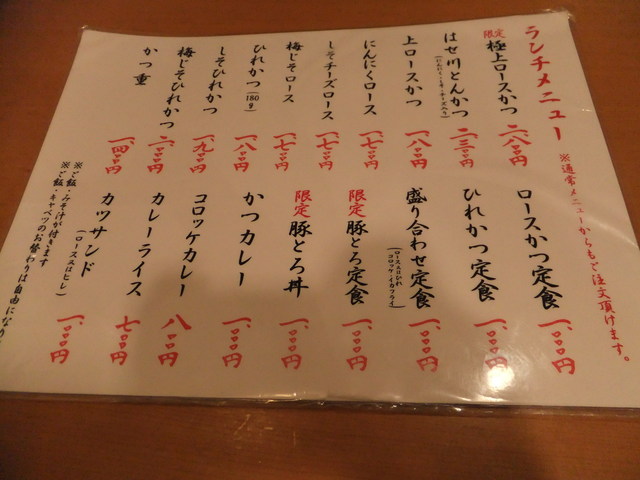 ランチメニュー
※通常メニューからもご注文頂けます。
限定 極上ロースかつ 二、八〇〇円
はせ川とんかつ 二、三〇〇円
(にんにく・しそ・チーズ入り)
上ロースかつ 一、八〇〇円
にんにくロース 一、七〇〇円
しそチーズロース 一、七〇〇円
梅じそロース 一、七〇〇円
ひれかつ(180g) 一、八〇〇円
しそひれかつ 一、九〇〇円
梅じそひれかつ 二、〇〇〇円
かつ重 一、四〇〇円
ロースかつ定食 一、〇〇〇円
ひれかつ定食 一、〇〇〇円
盛り合わせ定食 一、〇〇〇円
(ロース又はひれ
コロッケ・イカフライ)
限定 豚とろ定食 一、〇〇〇円
限定 豚とろ丼 一、〇〇〇円
かつカレー 一、〇〇〇円
コロッケカレー 八〇〇円
カレーライス 七〇〇円
カツサンド 一、〇〇〇円
(ロース又はヒレ)
※ご飯・みそ汁が付きます
※ご飯・キャベツのお替わりは自由になり